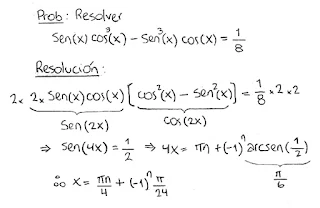 Prob: Resolver
Sen(x) cos³(x) - Sen³(x) cos(x) = 1/8
Resolución:
2x 2x Sen(x) cos(x) [cos²(x) - Sen²(x)] = 1/8 x 2 x 2
Sen(2x) cos(2x)
⇒ Sen(4x) = 1/2 ⇒ 4x = πn + (-1)ⁿ arcsen(1/2)
π/6
∴ x = πn/4 + (-1)ⁿ π/24